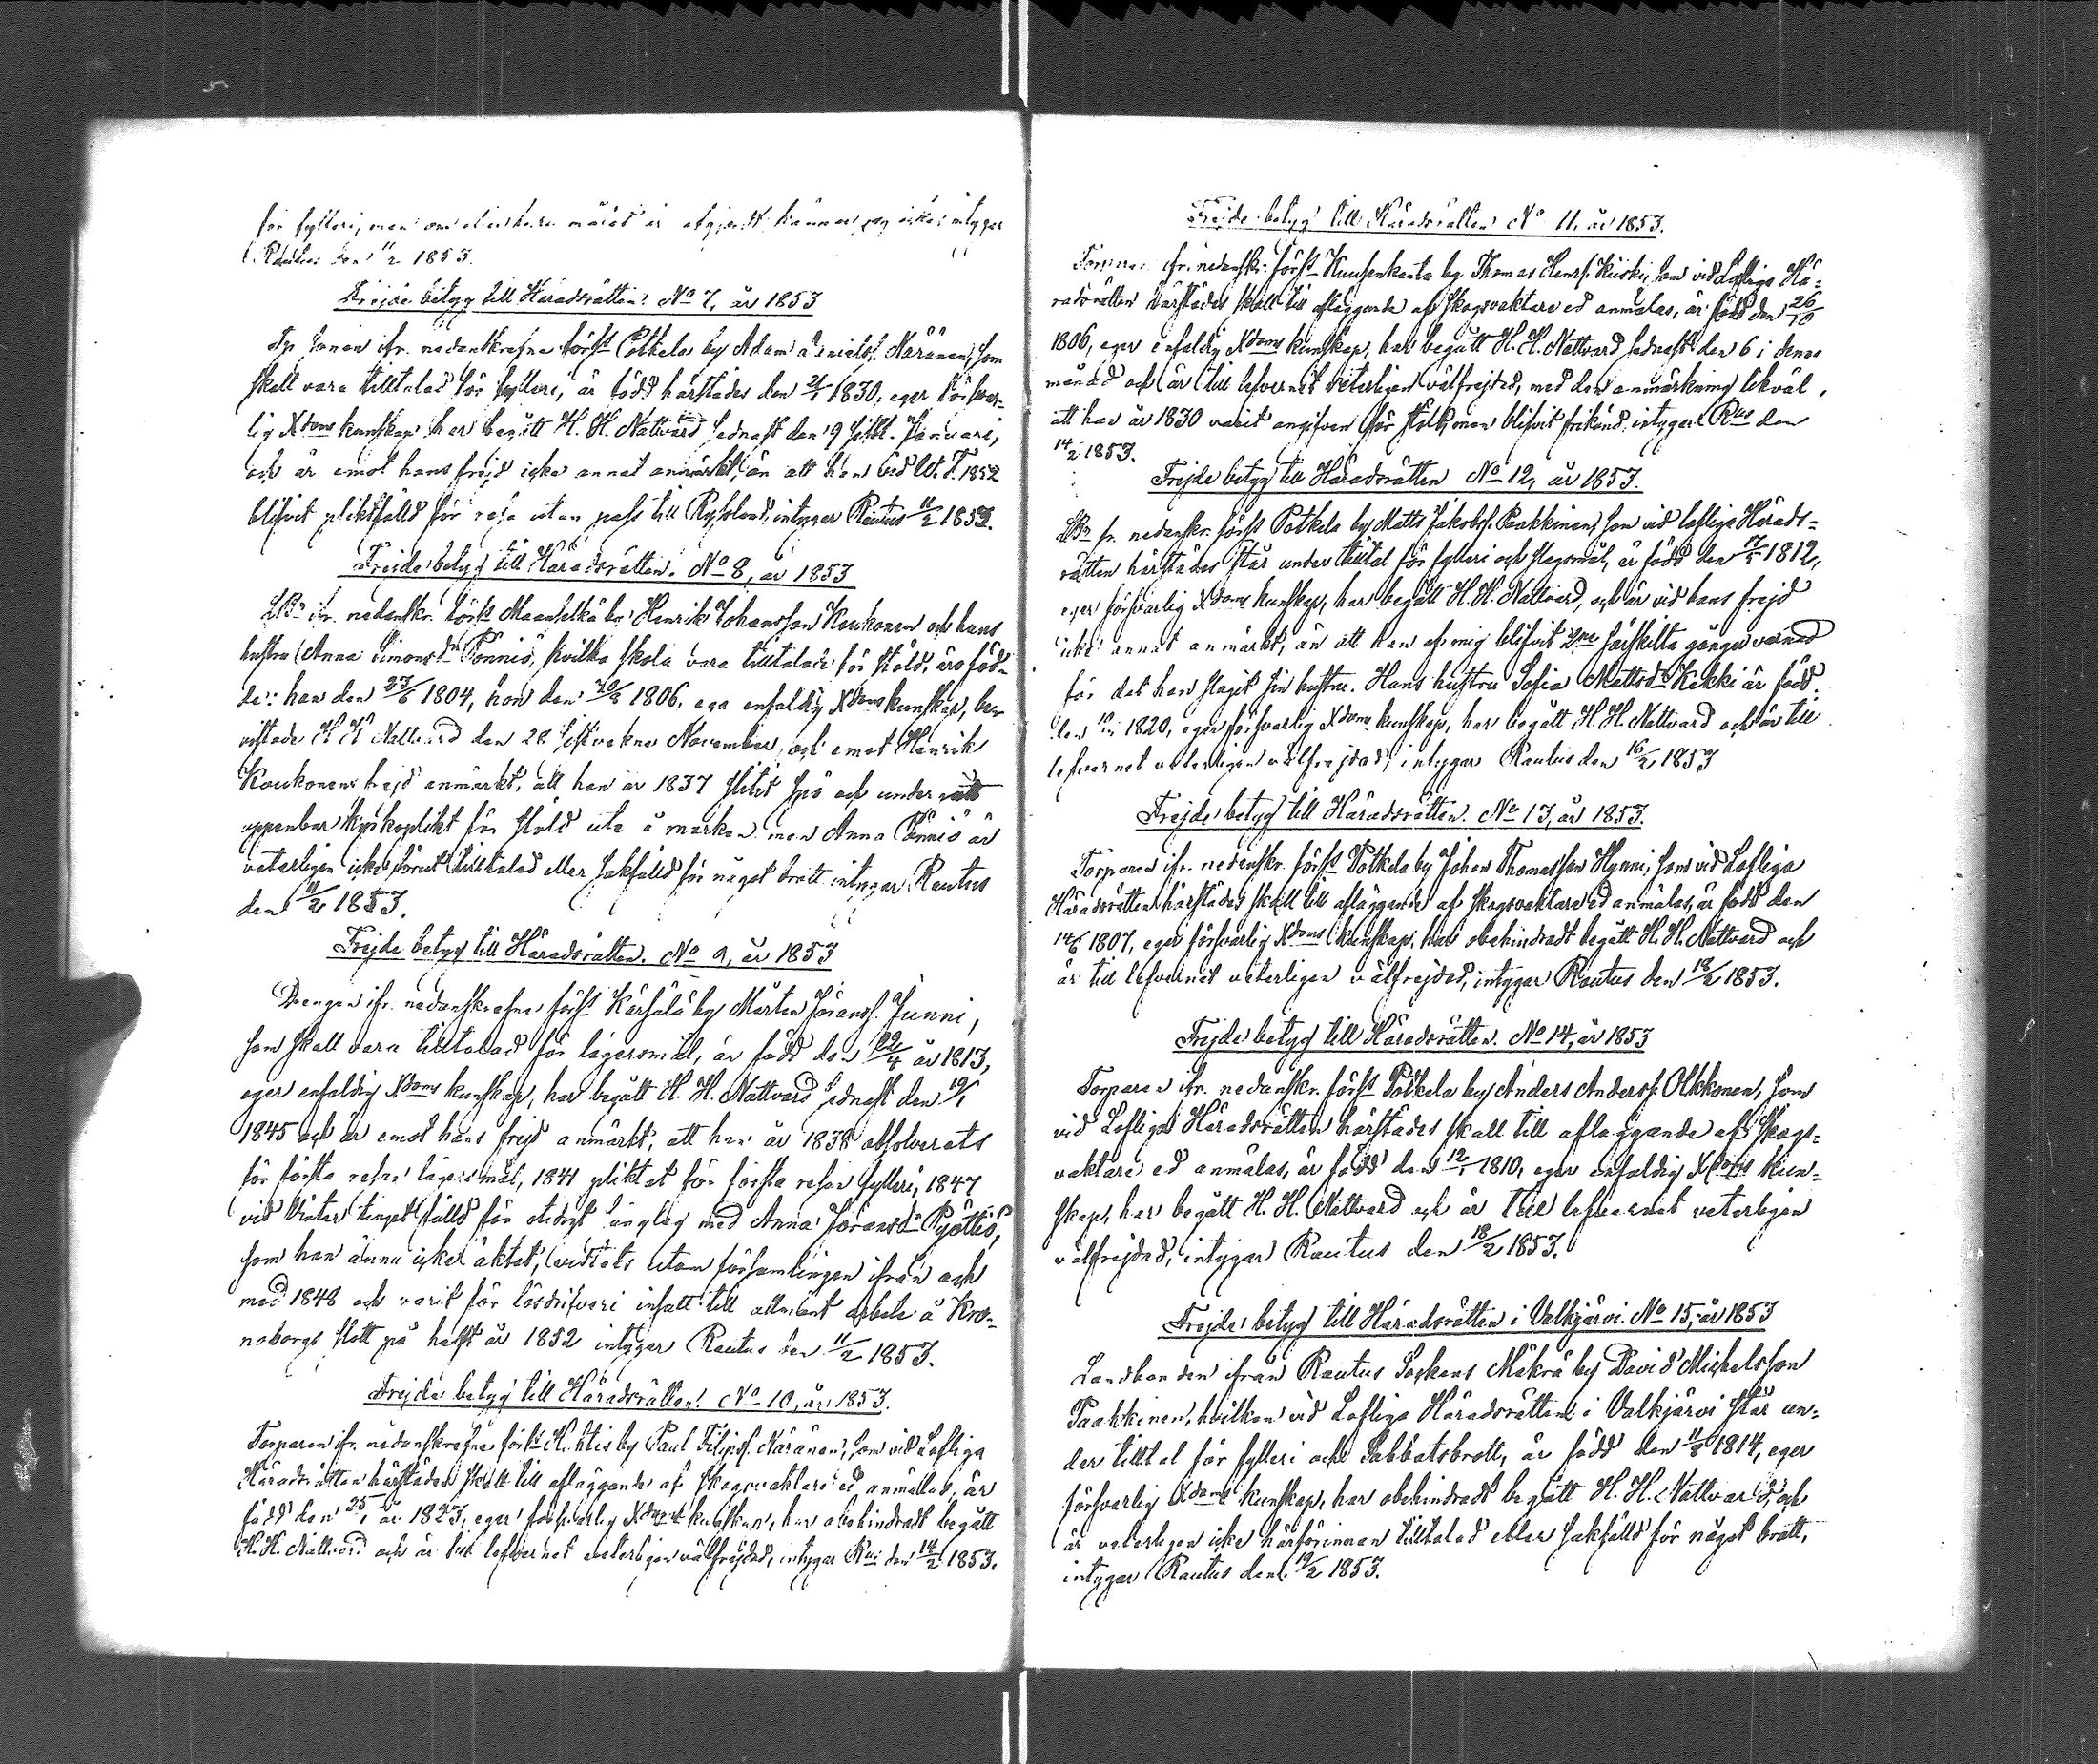 för fylleri, men om målet är afgjordt känner jag icke, intygar
Rautus den 11/2 1853.
Frejde betyg till Häradsrätten. No 7, år 1853
Tp sonen ifr. nedanskrefne förs:s Potkela by Adam Danielss. Näränen, som
skall vara tilltalad för fylleri, är född härstädes den 2/1 1830, eger försvar-
lig Xdoms kunskap har begått H. H. Nattvard sednast den 9 sistl. Januari,
och är emot hans frejd icke annat anmärkt, än att han vid W. T. 1852
blifvit pliktfälld för resa utan pass till Ryssland, intygar Rautus 11/2 1853.
Frejde betyg till Häradsrätten. No 8, år 1853
LBn ifr. nedanskr. förs:s Maanselkä by Henrik Johansson Koukonen och hans
hustru Anna Simonsdr Pönniö, hvilka skola vara tilltalade för stöld, äro föd-
de: han den 27/6 1804, hon den 1806, ega enfaldig Xdoms kunskap, be-
vistade H H Nattvard den 28 sistvekne November, och emot Henrik
Koukonens frejd anmärkt, att han år 1837 slitit spö och undergått
uppenbar kyrkoplikt för stöld ute å marken men Anna Pönniö är
veterligen icke förut tilltalad eller sakfälld för något brott intygar Rautus
den 11/2 1853.
Frejde betyg till Häradsrätten. No 9, år 1853
Drengen ifr. nedanskrefne förs:s Kärsälä by Mårten Göranss. Junni,
som skall vara tilltalad för lägersmål, är född den 22/4 år 1813,
eger enfaldig Xdoms kunskap, har begått H. H. Nattvard sednast den 19/1
1845 och är emot hans frejd anmärkt, att han år 1838 absolverats
för första resan lägersmål, 1841 pliktat för första resan fylleri, 1847
vid Vinter tinget fälld för otidigt sänglag med Anna Göransdr Pyöttiö,
som han ännu icke äktat, vistats utom församlingen ifrån och
med 1848 och varit för lösdrifveri insatt till allmänt arbete å Kro-
noborgs slott på halft år 1852 intygar Rautus den 11/2 1853.
Frejde betyg till Häradsrätten. No 10, år 1853.
Torparen ifr. nedanskrefne förs:s by Paul Filipss. Näränen, som vid Lofliga
Häradsrätten härstädes skall till afläggande af skogsvaktare ed anmällas, är
född den 25/1 år 1823, eger försvarlig Xdoms kunskap, har obehindradt begått
H. H. Nattvard och är till lefvernet veterligen välfrejdad, intygar Rus den 14/2 1853.
Frejde betyg till Häradsrätten No 11, år 1853.
Torparen ifr. nedanskr. förs:s Kuusenkanta by Thomas Henrss. Kiiski, som vid Lofliga Hä-
radsrätten härstädes skall till afläggande af skogsvaktare ed anmälas, är född den 26/10
1806, eger enfaldig Xdoms kunskap, har begått H. H. Nattvard sednast den 6 i denna
månad och är till lefvernet veterligen välfrejdad, med den anmärkning likväl,
att han år 1830 varit angifven för stöld, men blifvit frikänd, intygar Rus den
14/2 1853.
Frejde betyg till Häradsrätten No 12, år 1853.
LBn fr. nedanskr. förs:s Potkela by Matts Jakobss. Paakkinen, som vid lofliga Härads-
rätten härstädes står under tilltal för fylleri och slagsmål, är född den 17/5 1812,
eger försvarlig Xdoms kunskap, har begått H. H. Nattvard, och är vid hans frejd
icke annat anmärkt, än att han af mig blifvit 2ne särskilta gånger varnad
för det han slagit sin hustru. Hans hustru Sofia Mattsdr Kekki är född
den 1820, eger försvarlig Xdoms kunskap, har begått H. H. Nattvard och är till
lefvernet veterligen välfrejdad, intygar Rautus den 16/2 1853
Frejde betyg till Häradsrätten. No 13, år 1853.
Torparen ifr. nedanskr. förs:s Potkela by Johan Thomasson Hynni, som vid Lofliga
Häradsrätten härstädes skall till afläggande af skogsvaktare ed anmälas, är född den
14/6 1807, eger försvarlig Xdoms kunskap, har obehindradt begått H. H. Nattvard och
är till lefvernet veterligen välfrejdad, intygar Rautus den 18/2 1853.
Frejde betyg till Häradsrätten. No 14, år 1853
Torparen ifr. nedanskr. förs:s Potkela by Anders Anderss. Olkkonen, som
vid Lofliga Häradsrätten härstädes skall till afläggande af skogs-
vaktare ed anmälas, är född den 12/1 1810, eger enfaldig Xdoms kun-
skap, har begått H. H. Nattvard och är till lefvernet veterligen
välfrejdad, intygar Rautus den 18/2 1853.
Frejde betyg till Häradsrätten i Valkjärvi. No 15, år 1853
Landbonden ifrån Rautus Sockens Mäkrä by David Michelsson
Paakkinen, hvilken vid Lofliga Häradsrätten i Valkjärvi står un-
der tilltal för fylleri och Sabbatsbrott, är född den 11/8 1814, eger
försvarlig Xdoms kunskap, har obehindradt begått H. H. Nattvard, och
är veterligen icke härförinnan tilltalad eller sakfälld för något brott,
intygar Rautus den 19/2 1853.